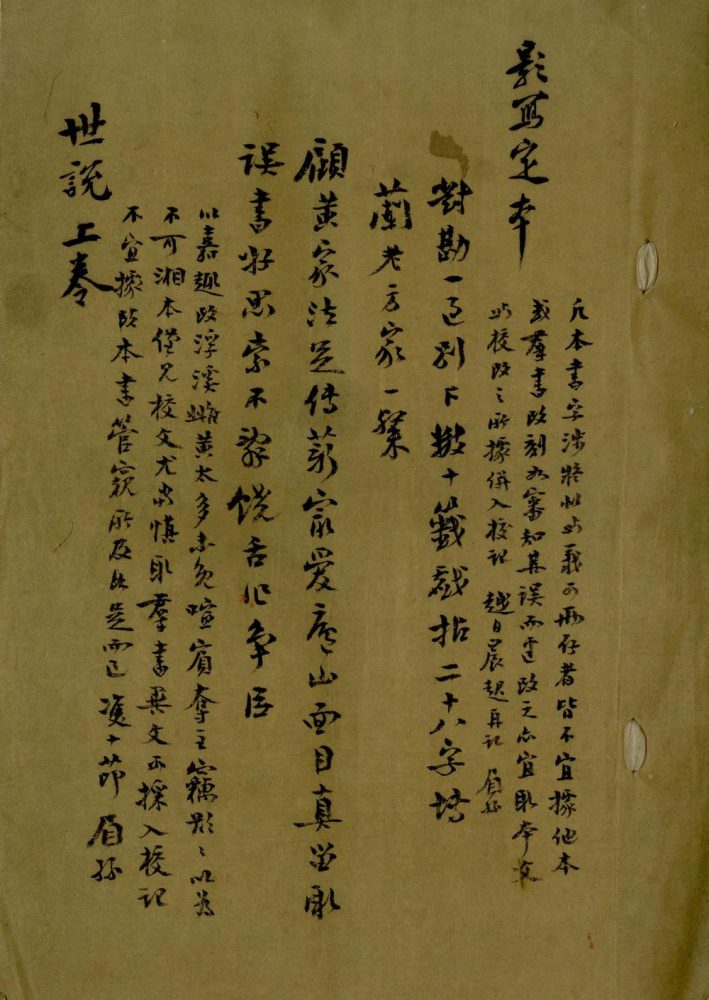 影寫定本
凡本書字涉疑似與義可兩存者皆不宜據他本
或羣書改刻如審知其誤而逕改之亦宜取本文
與校改之所據併入校記 越日晨起再記 眉孫
對勘一過別下數十籤戲拈二十八字博
蘭老方家一粲
顧黃家法足傳薪家愛廬山面目真留取
誤書好思索不辭饒舌作爭臣
以嘉趣改浮溪雌黃太多未免喧賓奪主竊期期以為
不可湘本僅見校文尤當慎取羣書異文可採入校記
不宜據改本書管窺所及止是而已 雙十節 眉孫
世說 上卷